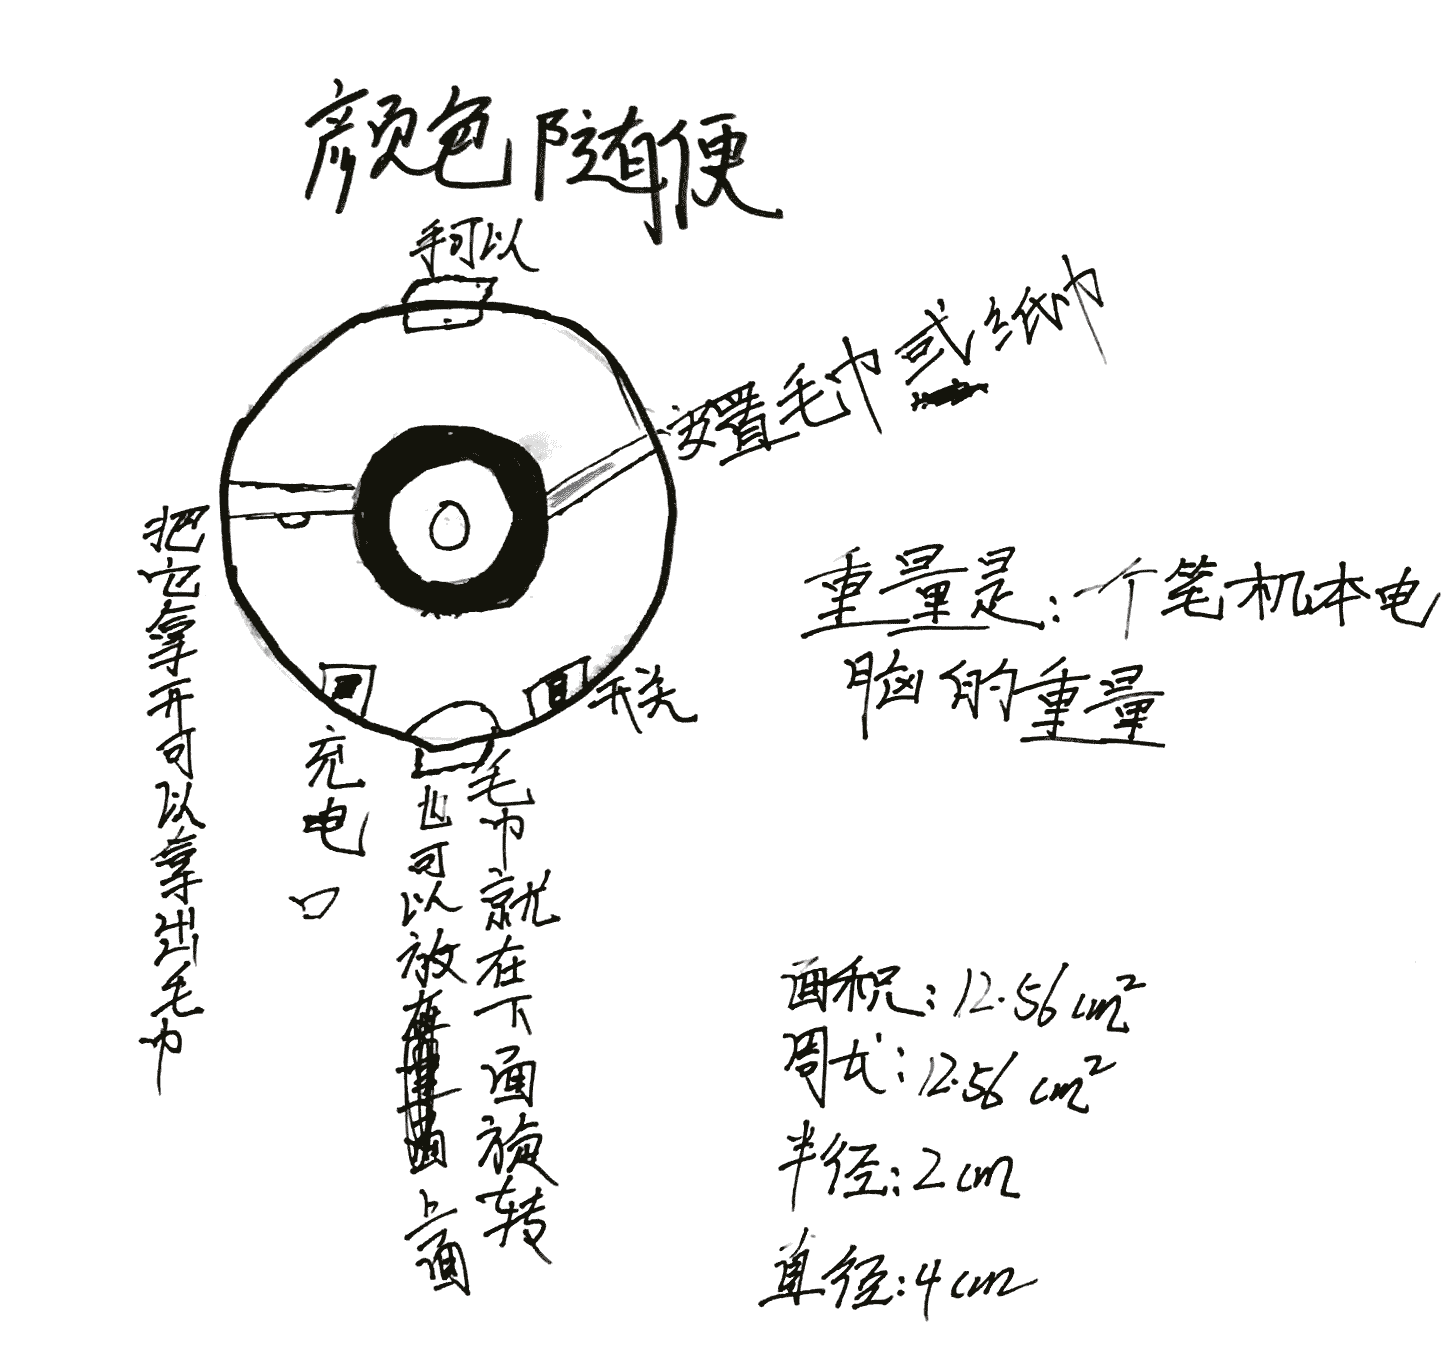 颜色随便
手可以
设置毛巾或纸巾
把它拿开可以拿出毛巾
重量是：一个笔机本电
脑的重量
开关
充电口
也可以放在上面
毛巾就在下面旋转
面积：12.56cm²
周长：12.56cm²
半径：2cm
直径：4cm